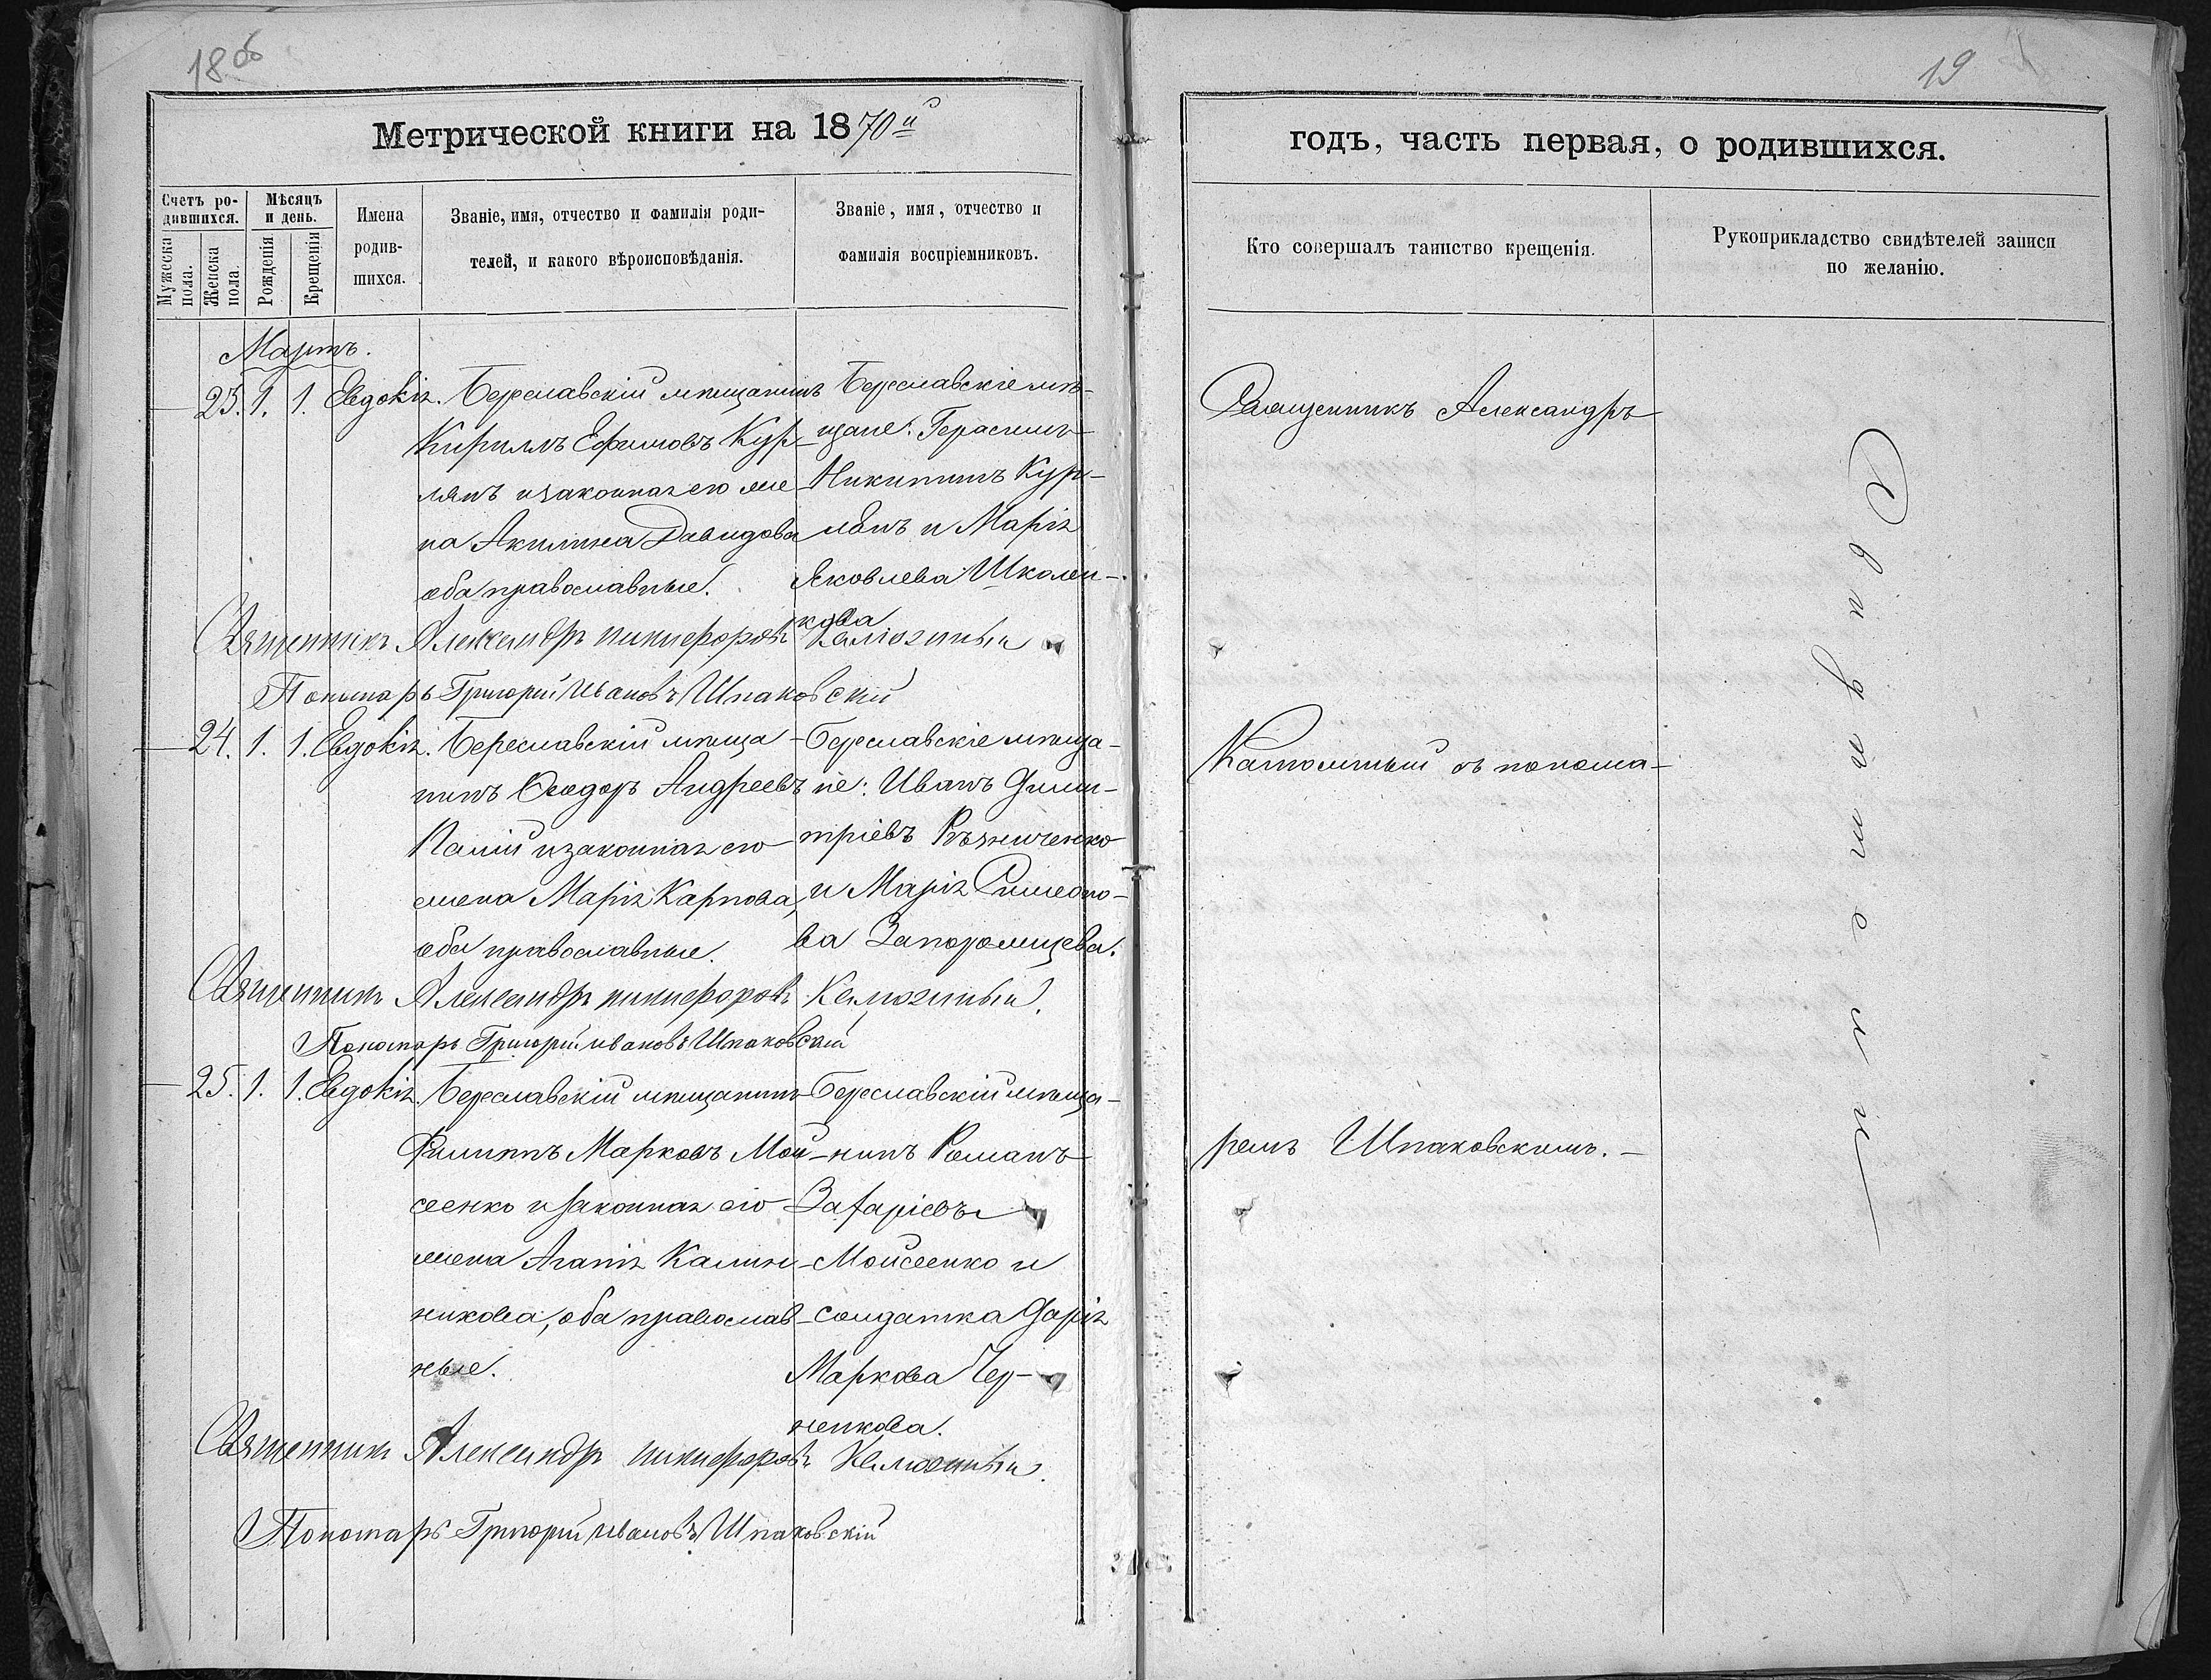 18 об
19
Метрической книги на 1870й
годъ, часть первая, о родившихся.
Счетъ ро-
дившихся.
Мужеска
пола.
Женска
пола.
Мѣсяцъ
и день.
Рожденія
Крещенія
Имена
родив-
шихся.
Званіе, имя, отчество и фамилія роди-
телей, и какого вѣроисповѣданія.
Званіе, имя, отчество и
фамилія воспріемниковъ.
Кто совершалъ таинство крещенія.
Рукоприкладство свидѣтелей записи
по желанію.
Мартъ.
23. 1. 1. Евдокія.
Береславскій мѣщанинъ
Кирилъ Ефимовъ Кур-
лянъ и законная его же
на Акилина Давидова
оба православные.
Береславскіе мѣ-
щане: Герасимъ
Никитинъ Кур-
лянъ и Марія
Яковлева Школи-
кова
Священникъ Александръ Никифоровъ
Пономаръ Григорій Ивановъ Шпаковскій
24. 1. 1. Евдокія.
Береславскій мѣща-
нинъ Ѳеодоръ Андреевъ
Палій и законная его
жена Марія Карпова,
оба православные.
Береславскіе мѣща-
не: Иванъ Дими-
тріевъ Рѣзниченко
и Марія Симеоно-
ва Запорожцева.
Священникъ Александръ Никифоровъ
Пономаръ Григорій Ивановъ Шпаковскій
25. 1. 1. Евдокія.
Береславскій мѣщанинъ
Филиппъ Марковъ Мои-
сеенко и законная его
жена Агапія Калин-
никова, оба православ-
ные.
Береславскій мѣща-
нинъ Романъ
Захаріевъ
Моисеенко и
солдатка Дарія
Маркова Чер-
ненкова.
Священникъ Александръ Никифоровъ
Пономаръ Григорій Ивановъ Шпаковскій
Священникъ Александръ
съ понома-
ремъ Шпаковскимъ.